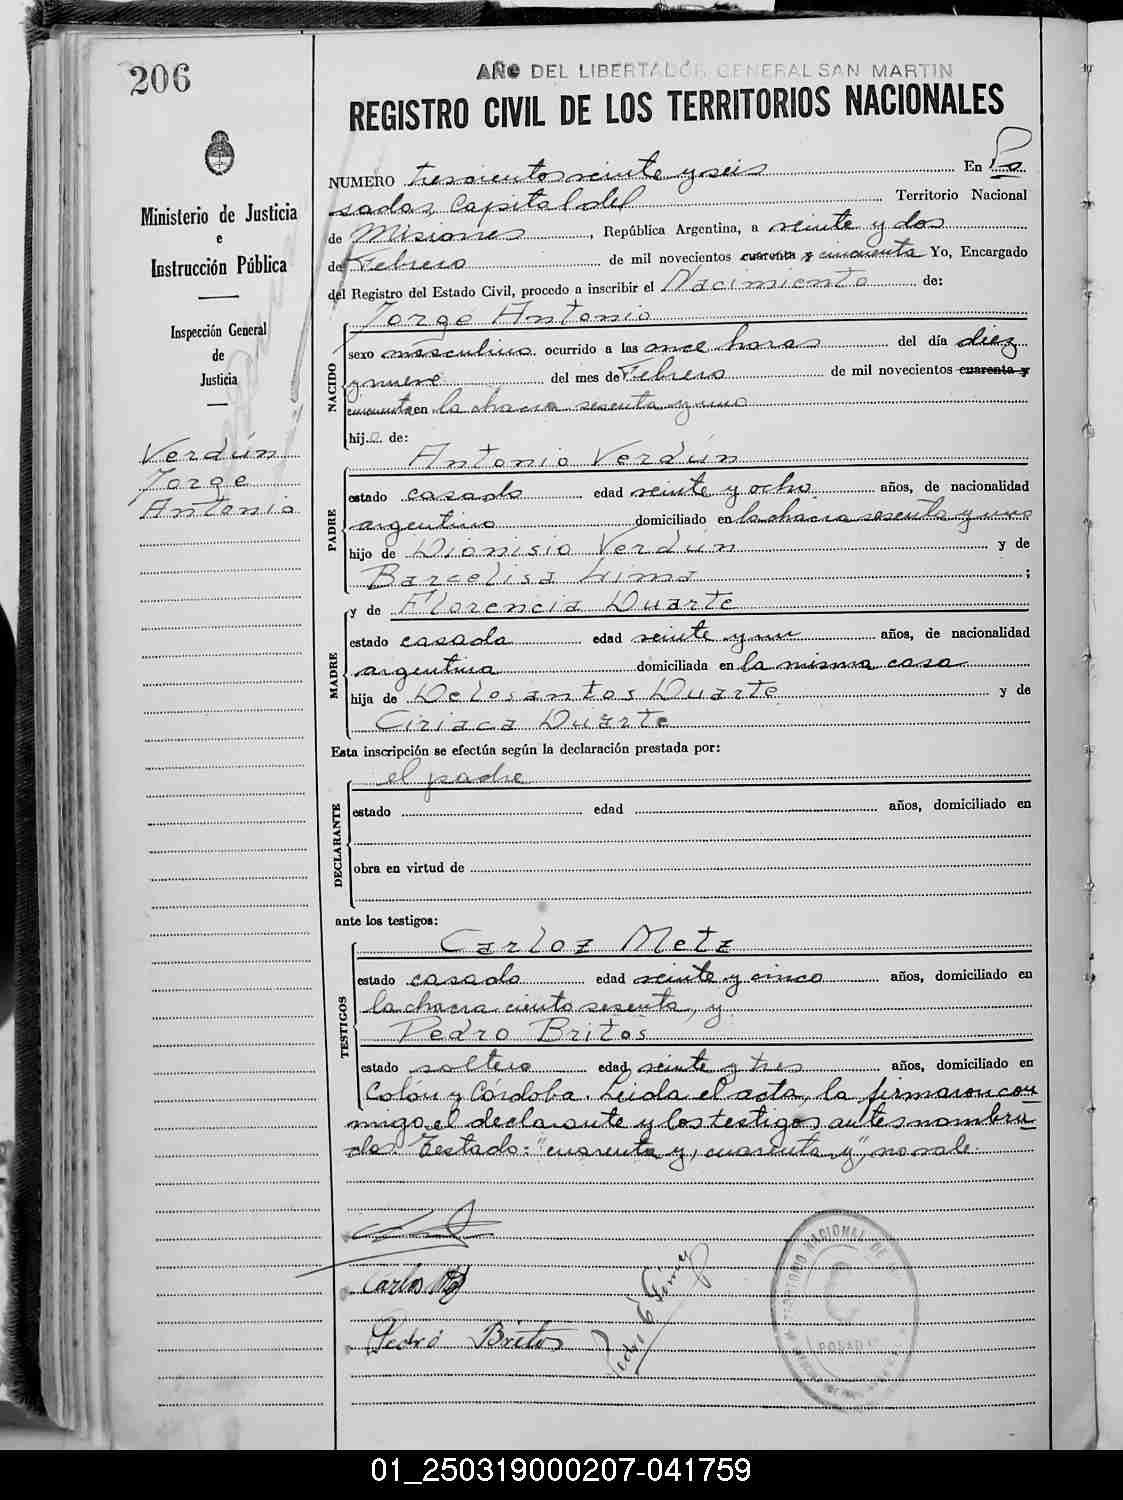 206
AÑO DEL LIBERTADOR GENERAL SAN MARTIN
REGISTRO CIVIL DE LOS TERRITORIOS NACIONALES
Ministerio de Justicia
e
Instrucción Pública
Inspección General
de
Justicia
Verdún
Jorge
Antonio
NUMERO trescientos veinte y seis En Po
sadas, Capital del Territorio Nacional
de Misiones, República Argentina, a veinte y dos
de Febrero de mil novecientos cuarenta y cincuenta Yo, Encargado
del Registro del Estado Civil, procedo a inscribir el Nacimiento de:
NACIDO
Jorge Antonio
sexo masculino ocurrido a las once horas del día diez
y nueve del mes de Febrero de mil novecientos cuarenta y
cincuenta en la chacra sesenta y uno
hijo de:
PADRE
Antonio Verdún
estado casado edad veinte y ocho años, de nacionalidad
argentino domiciliado en la chacra sesenta y uno
hijo de Dionisio Verdún y de
Barcelisa Lima;
MADRE
y de Florencia Duarte
estado casada edad veinte y un años, de nacionalidad
argentina domiciliada en la misma casa
hija de Delosantos Duarte y de
Ciriaca Duarte
Esta inscripción se efectúa según la declaración prestada por:
DECLARANTE
el padre
estado edad años, domiciliado en
obra en virtud de
ante los testigos:
TESTIGOS
Carloz Metz
estado casado edad veinte y cinco años, domiciliado en
la chacra ciento sesenta, y
Pedro Britos
estado soltero edad veinte y tres años, domiciliado en
Colón y Córdoba. Leida el acta, la firmaron con
migo el declarante y los testigos antes nombra
dos. Testado: "cuarenta y, cuarenta y", no vale.
Carlos
Pedro Britos
POSADAS
01_250319000207-041759